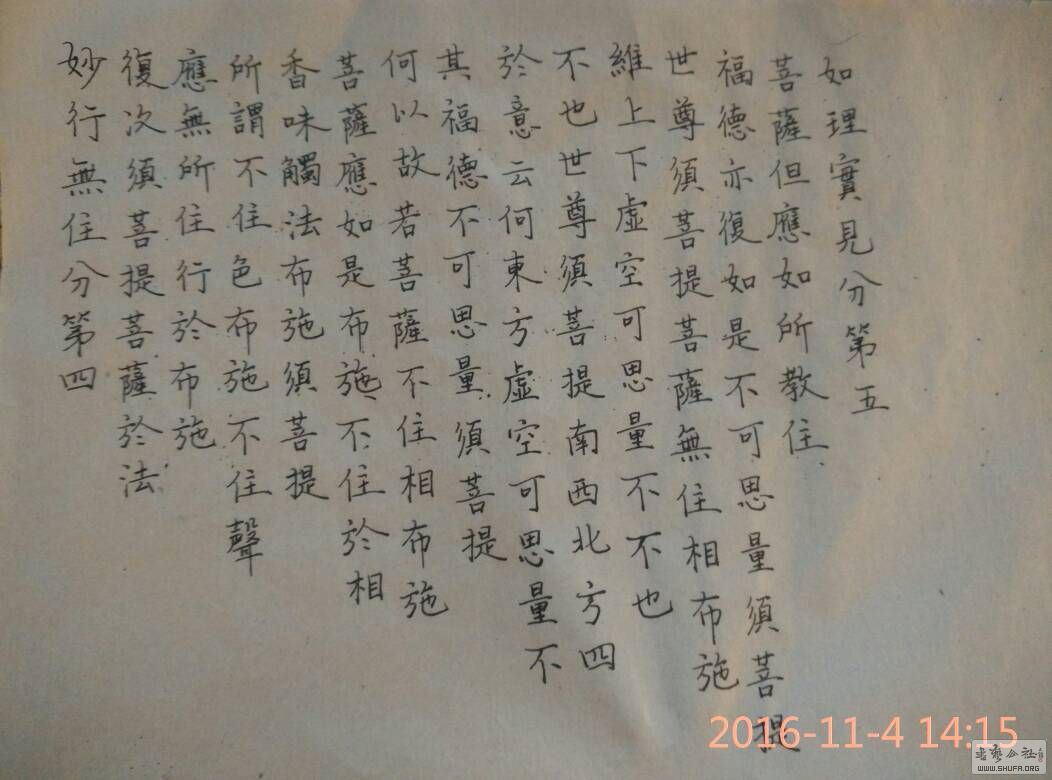 妙行無住分第四
復次須菩提菩薩於法
應無所住行於布施
所謂不住色布施不住聲
香味觸法布施須菩提
菩薩應如是布施不住於相
何以故若菩薩不住相布施
其福德不可思量須菩提
於意云何東方虛空可思量不
不也世尊須菩提南西北方四
維上下虛空可思量不不也
世尊須菩提菩薩無住相布施
福德亦復如是不可思量須菩提
菩薩但應如所教住
如理實見分第五
2016-11-4 14:15
WWW.SHUFA.ORG